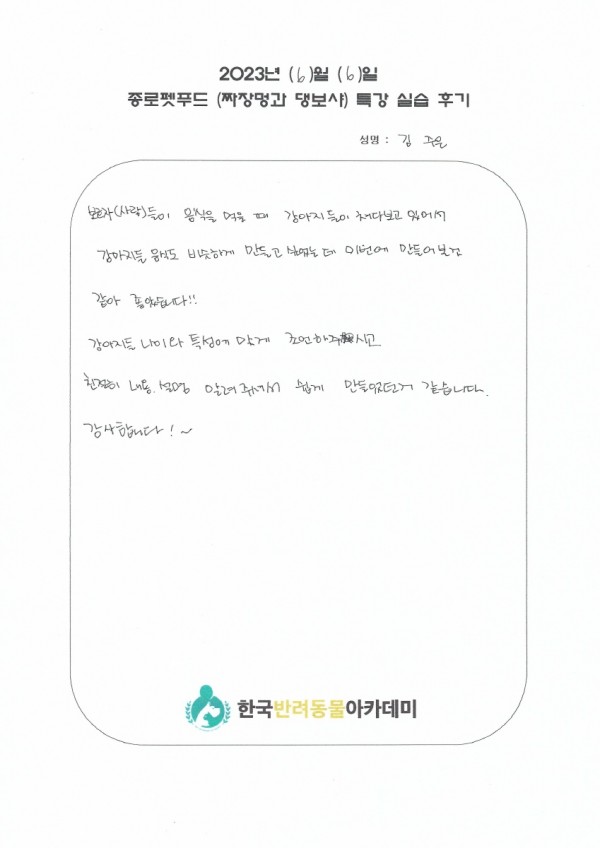 2023년 (6)월 (6)일
종로펫푸드 (짜장멍과 댕보샤) 특강 실습 후기
성명 : 김 주은
보호자(사람)들이 음식을 먹을 때 강아지들이 쳐다보고 있어서
강아지들 음식도 비슷하게 만들고 싶었는데 이번에 만들어보건
같아 좋았습니다!!
강아지들 나이와 특성에 맞게 조언해주시고
친절히 내용, 설명 알려주셔서 쉽게 만들었던거 같습니다.
감사합니다! ~
한국반려동물아카데미